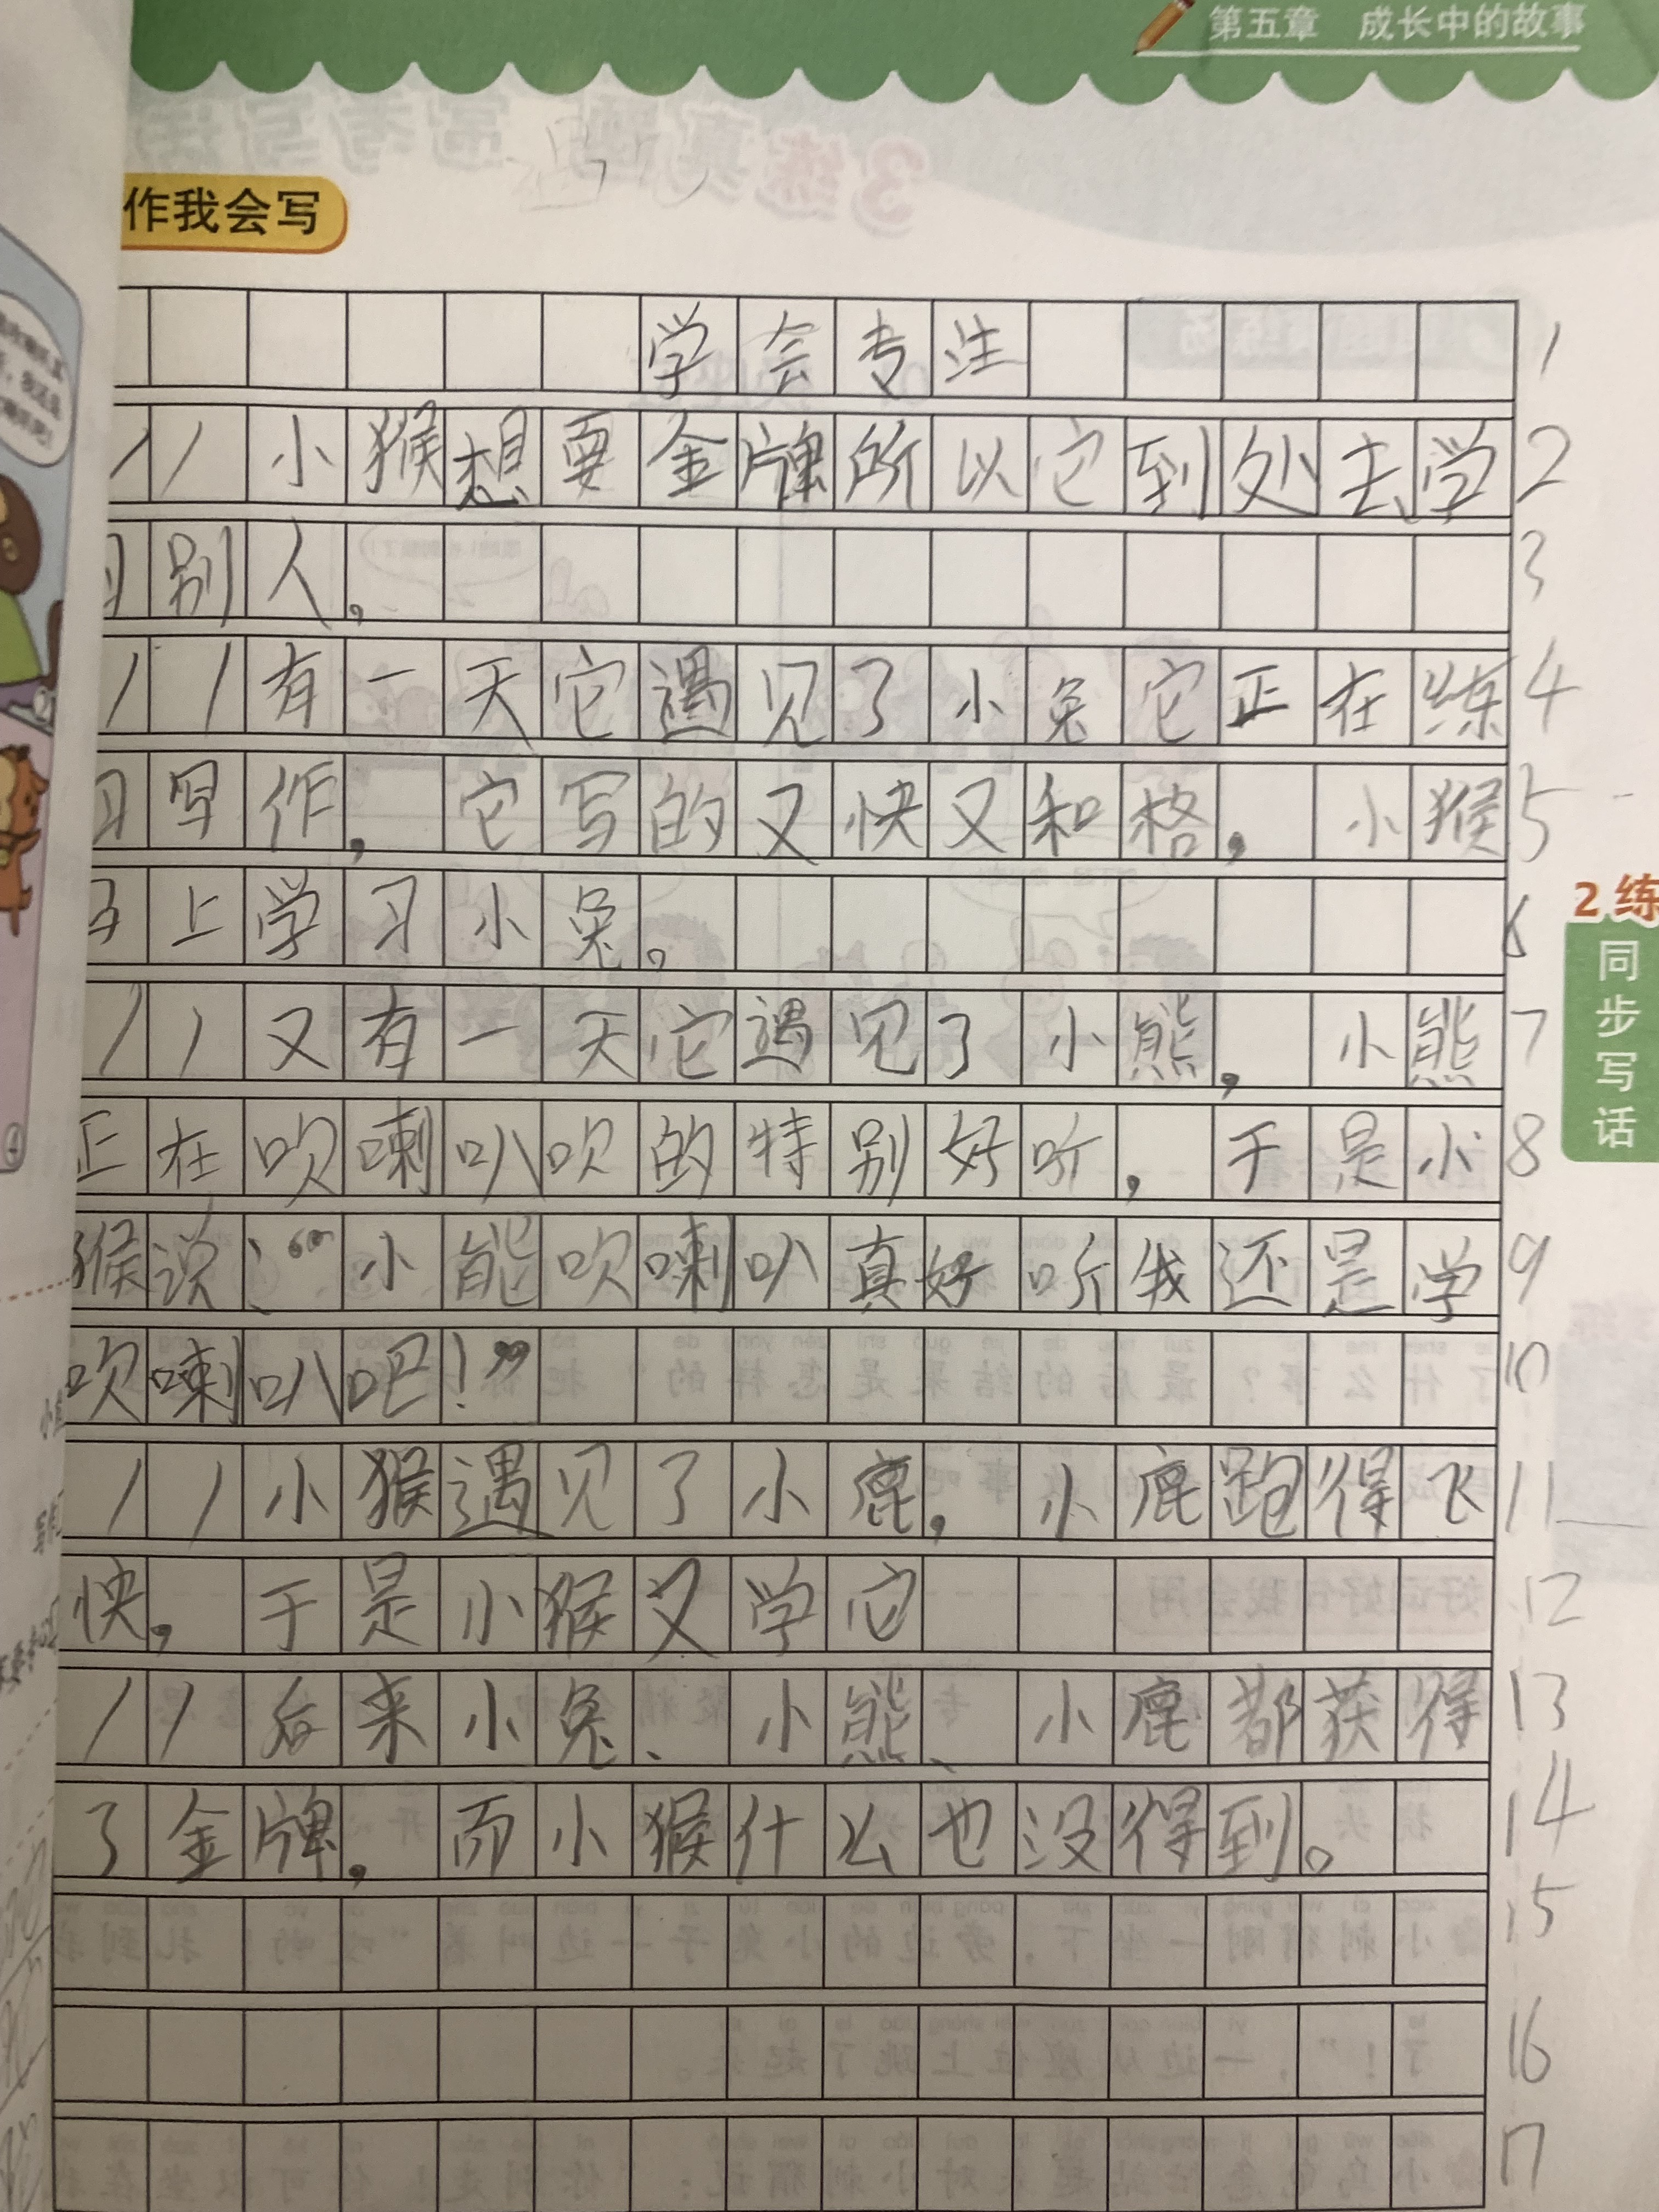 第五章 成长中的故事
作我会写
学会专注 1
小猴想要金牌所以它到处去学 2
习别人， 3
有一天它遇见了小兔它正在练 4
习写作，它写的又快又和格，小猴 5
马上学习小兔。 6
又有一天它遇见了小熊，小熊 7
正在吹喇叭吹的特别好听，于是小 8
猴说：“小能吹喇叭真好听我还是学 9
吹喇叭吧！” 10
小猴遇见了小鹿，小鹿跑得飞 11
快，于是小猴又学它 12
后来小兔、小熊、小鹿都获得 13
了金牌，而小猴什么也没得到。 14
15
16
17
2 练
同步写话
④